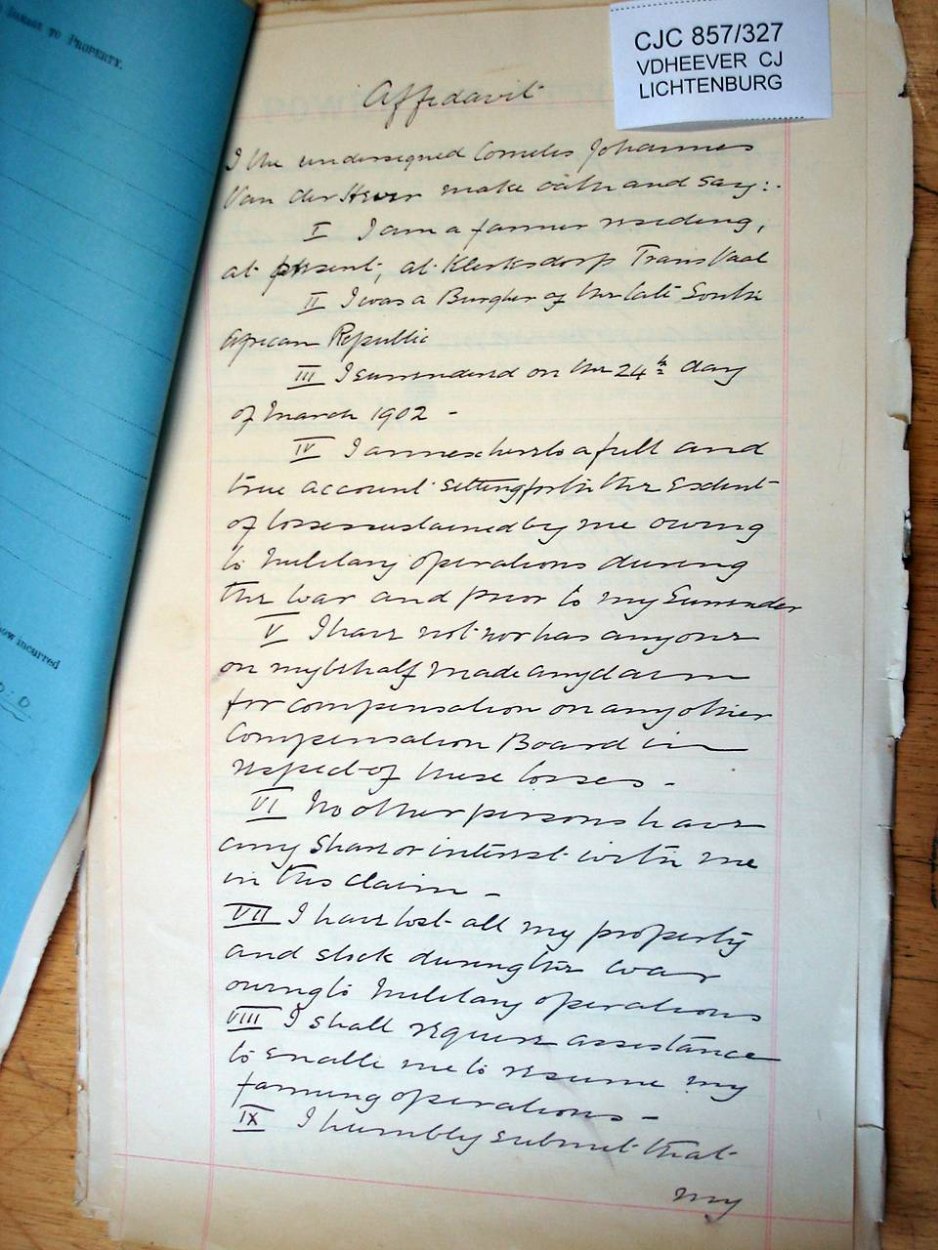 DAMAGE TO PROPERTY.
CJC 857/327
VDHEEVER CJ
LICHTENBURG
Affidavit
I the undersigned Cornelis Johannes
Van der Hever make oath and say:-
I I am a farmer residing,
at present, at Klerksdorp Transvaal
II I was a Burgher of the late South
African Republic
III I surrendered on the 24th day
of March 1902 -
IV I annex hereto a full and
true account setting forth the Extent
of losses sustained by me owing
to Military operations during
the War and prior to my Surrender
V I have not nor has anyone
on my behalf made any claim
for compensation on any other
Compensation Board in
respect of these losses -
VI No other persons have
any share or interest with me
in this claim -
VII I have lost all my property
and stock during the war
owing to Military operations
VIII I shall require assistance
to enable me to resume my
farming operations -
IX I humbly submit that
my
now incurred